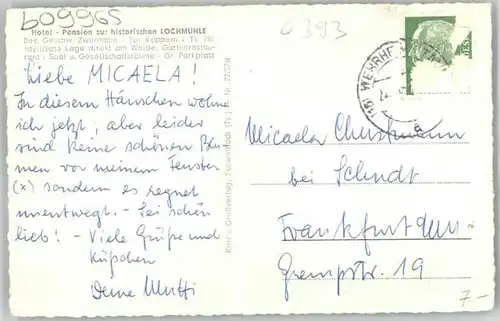 b09965
6393
Hotel - Pension zur historischen LOCHMÜHLE
Bes. Geschw. Zwermann - Tel. Köppern i. Ts. 281
Idyllische Lage direkt am Walde, Gartenrestau-
rant - Saal u. Gesellschaftsräume - Gr. Parkplatz
Liebe MICAELA!
In diesem Häuschen wohne
ich jetzt; aber leider
sind keine schönen Blu-
men vor meinem Fenster
(x) sondern es regnet
unentwegt. - Sei schön
lieb! - Viele Grüße und
Küßchen
Deine Mutti
(16) WEHRHEIM
a
Micaela Christmann
bei Schudt
Frankfurt
Grempstr. 19
7.-